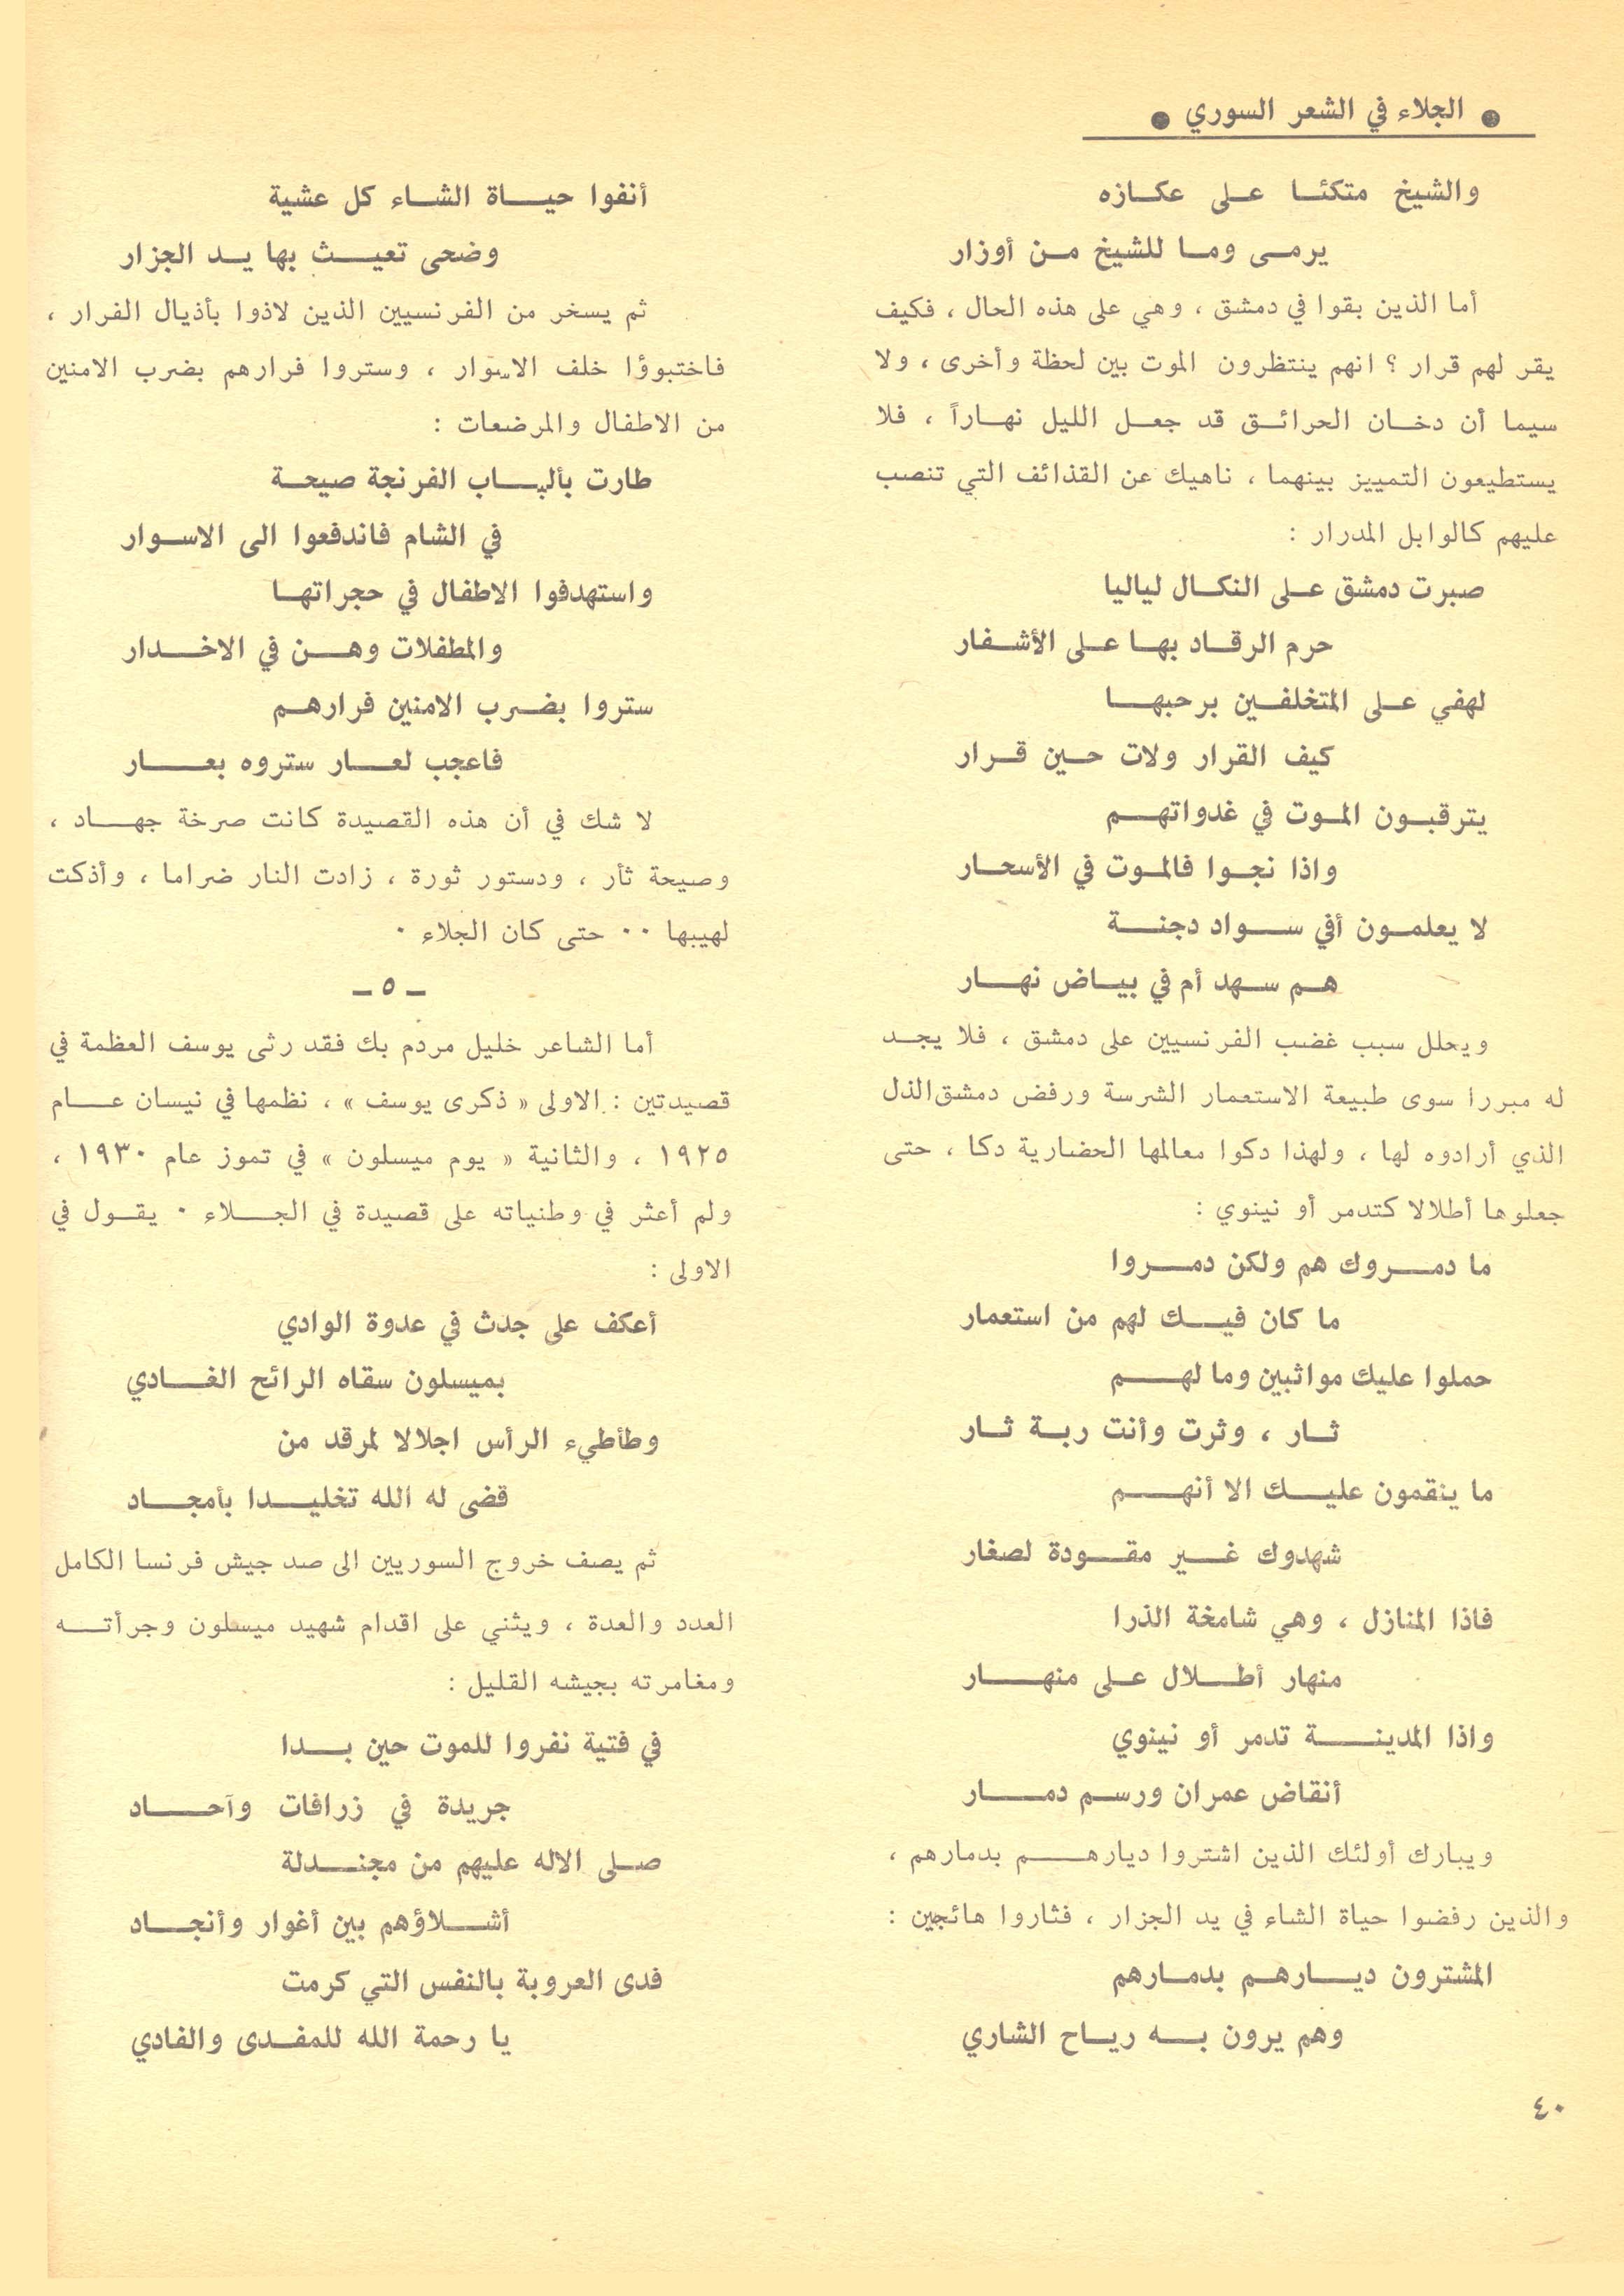 ● الجلاء في الشعر السوري ●
والشيخ متكئا على عكازه
يرمى وما للشيخ من أوزار
أما الذين بقوا في دمشق ، وهي على هذه الحال ، فكيف
يقر لهم قرار ؟ انهم ينتظرون الموت بين لحظة وأخرى ، ولا
سيما أن دخان الحرائق قد جعل الليل نهاراً ، فلا
يستطيعون التمييز بينهما ، ناهيك عن القذائف التي تنصب
عليهم كالوابل المدرار :
صبرت دمشق على النكال لياليا
حرم الرقاد بها على الأشفار
لهفي على المتخلفين برحبها
كيف القرار ولات حين قرار
يترقبون الموت في غدواتهم
واذا نجوا فالموت في الأسحار
لا يعلمون أفي سواد دجنة
هم سهد أم في بياض نهار
ويحلل سبب غضب الفرنسيين على دمشق ، فلا يجد
له مبررا سوى طبيعة الاستعمار الشرسة ورفض دمشق الذل
الذي أرادوه لها ، ولهذا دكوا معالمها الحضارية دكا ، حتى
جعلوها أطلالا كتدمر أو نينوي :
ما دمروك هم ولكن دمروا
ما كان فيك لهم من استعمار
حملوا عليك مواثبين وما لهم
ثار ، وثرت وأنت ربة ثار
ما ينقمون عليك الا أنهم
شهدوك غير مقودة لصغار
فاذا المنازل ، وهي شامخة الذرا
منهار أطلال على منهار
واذا المدينة تدمر أو نينوي
أنقاض عمران ورسم دمار
ويبارك أولئك الذين اشتروا ديارهم بدمارهم ،
والذين رفضوا حياة الشاء في يد الجزار ، فثاروا هائجين :
المشترون ديارهم بدمارهم
وهم يرون به رباح الشاري
أنفوا حياة الشاء كل عشية
وضحى تعيث بها يد الجزار
ثم يسخر من الفرنسيين الذين لاذوا بأذيال الفرار ،
فاختبوؤا خلف الاسوار ، وستروا فرارهم بضرب الامنين
من الاطفال والمرضعات :
طارت بألباب الفرنجة صيحة
في الشام فاندفعوا الى الاسوار
واستهدفوا الاطفال في حجراتها
والمطفلات وهن في الاخدار
ستروا بضرب الامنين فرارهم
فاعجب لعار ستروه بعار
لا شك في أن هذه القصيدة كانت صرخة جهاد ،
وصيحة ثأر ، ودستور ثورة ، زادت النار ضراما ، وأذكت
لهيبها ٠٠ حتى كان الجلاء ٠
– ٥ –
أما الشاعر خليل مردم بك فقد رثى يوسف العظمة في
قصيدتين : الاولى « ذكرى يوسف » ، نظمها في نيسان عام
١٩٢٥ ، والثانية « يوم ميسلون » في تموز عام ١٩٣٠ ،
ولم أعثر في وطنياته على قصيدة في الجلاء ٠ يقول في
الاولى :
أعكف على جدث في عدوة الوادي
بميسلون سقاه الرائح الغادي
وطأطيء الرأس اجلالا لمرقد من
قضى له الله تخليدا بأمجاد
ثم يصف خروج السوريين الى صد جيش فرنسا الكامل
العدد والعدة ، ويثني على اقدام شهيد ميسلون وجرأته
ومغامرته بجيشه القليل :
في فتية نفروا للموت حين بدا
جريدة في زرافات وآحاد
صلى الاله عليهم من مجندلة
أشلاؤهم بين أغوار وأنجاد
فدى العروبة بالنفس التي كرمت
يا رحمة الله للمفدى والفادي
٤٠